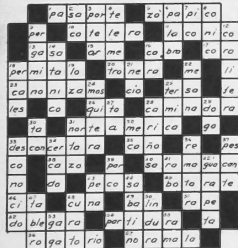 pa sa por te zo pa pi co
per co te le ra la co ni co
ga so ar me ca bra co ra
per mi ta lo tro ne ra me li
ca no ni za mos cio ter sa te
les co qui to ca mi na do ra
ta nor te a me ri ca go
des con cer ta ra ca ño re pes
co ca zo par so ra ma gua can
no do pe co sa ba ra te
ci ta cu na ba lin ra pe
do ble ga ra par ti du ra ta
ro ga to rio no ra ma la